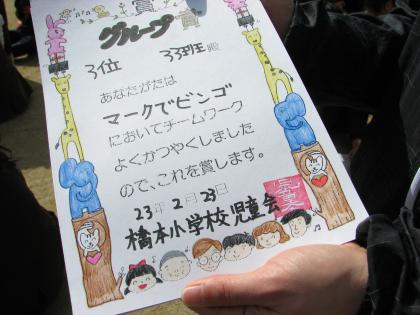 賞
グループ
3位 33班殿
あなたがたは
マークでビンゴ
においてチームワーク
よくかつやくしました
ので、これを賞します。
23年2月23日
橋本小学校児童会